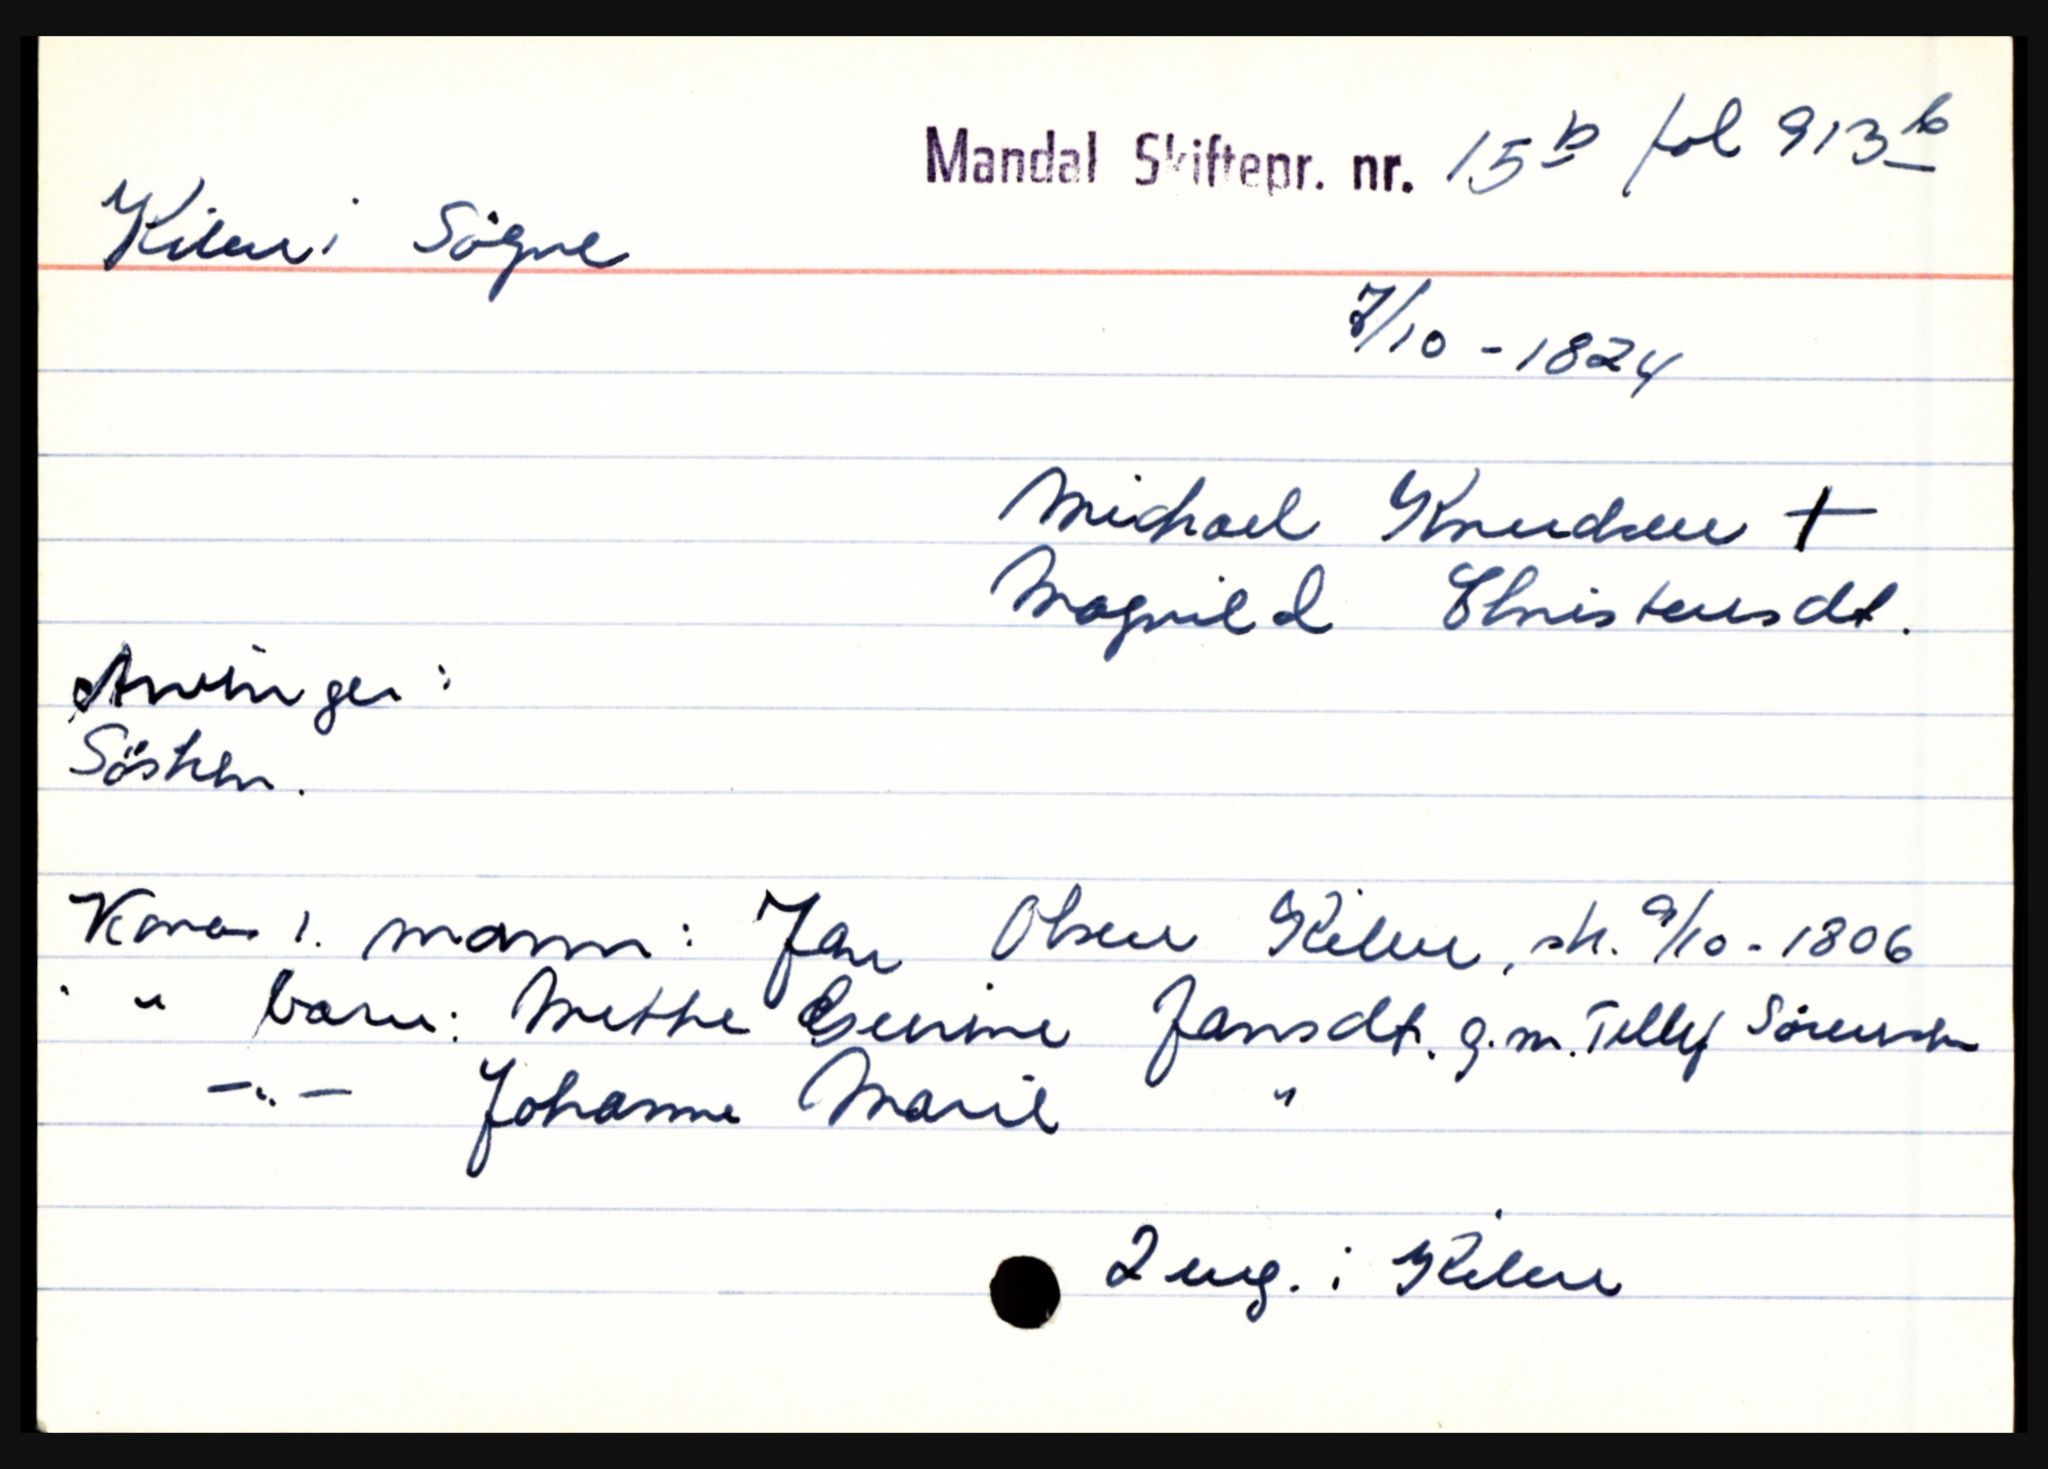 Mandal Skiftepr. nr. 15b fol 913b
Kilen i Søgne
7/10 - 1824
Michael Knudsen +
Magnild Christensdt.
Arvinger:
Søsken.
Konas 1. mann: Jan Olsen Kilen, sk. 9/10 - 1806
" " barn: Methe Gurine Jansdt. g.m. Tellef Sørensen
-"- Johanne Marie "
2 eng. i Kilen